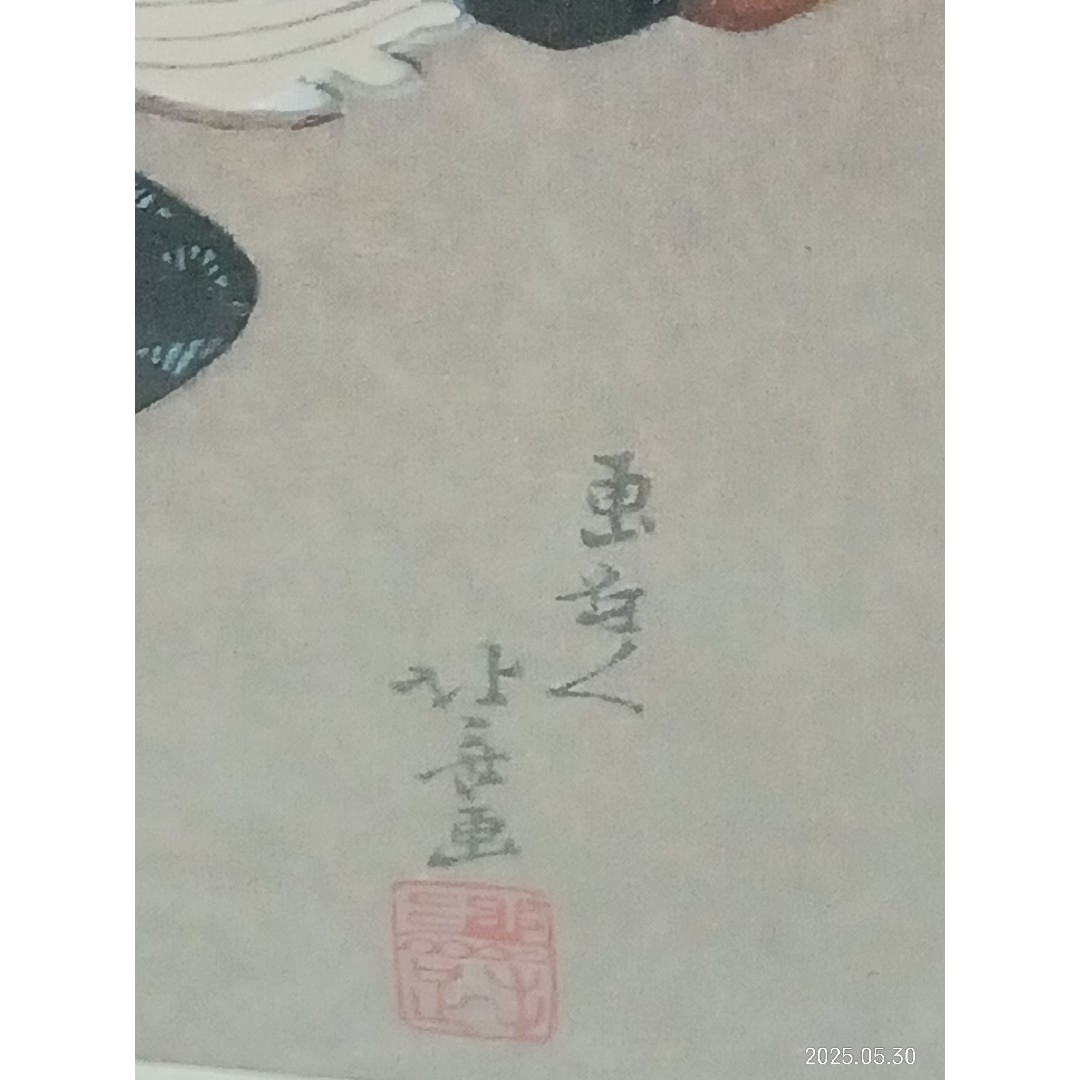 画狂人
北斎画
2025.05.30